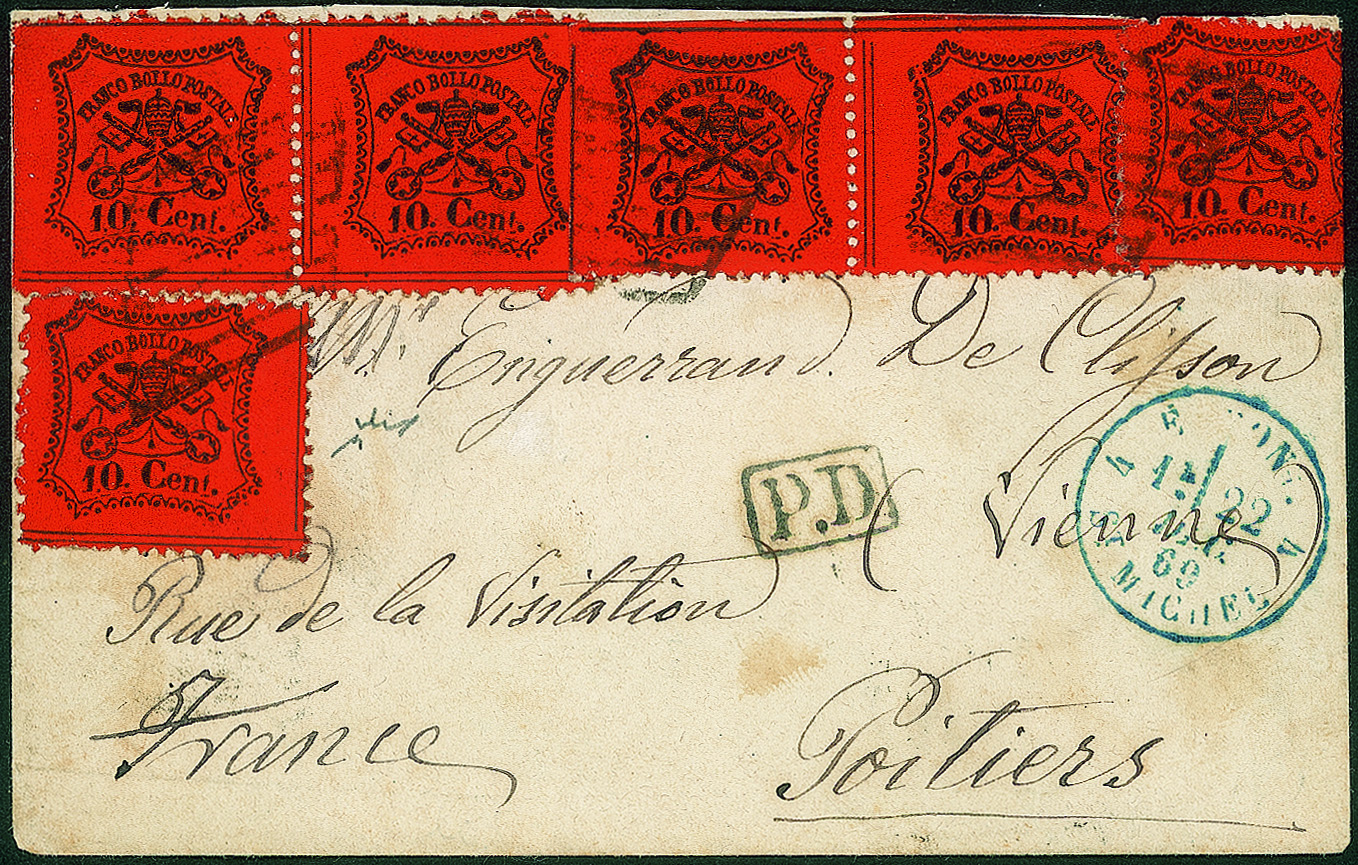 FRANCO BOLLO POSTALE
10. Cent.
FRANCO BOLLO POSTALE
10. Cent.
FRANCO BOLLO POSTALE
10. Cent.
FRANCO BOLLO POSTALE
10. Cent.
FRANCO BOLLO POSTALE
10. Cent.
FRANCO BOLLO POSTALE
10. Cent.
Mr Enguerrand. De Clisson
P.D.
(Vienne)
22
69
MICHEL
Rue de la Visitation
France
Poitiers